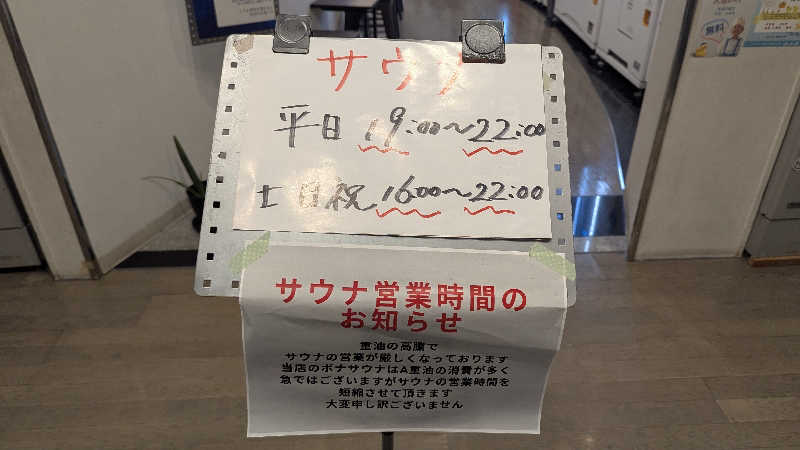 サウナ
平日 19:00〜22:00
土日祝 16:00〜22:00
サウナ営業時間の
お知らせ
重油の高騰で
サウナの営業が厳しくなっております
当店のボナサウナはA重油の消費が多く
急ではございますがサウナの営業時間を
短縮させて頂きます
大変申し訳ございません
無料